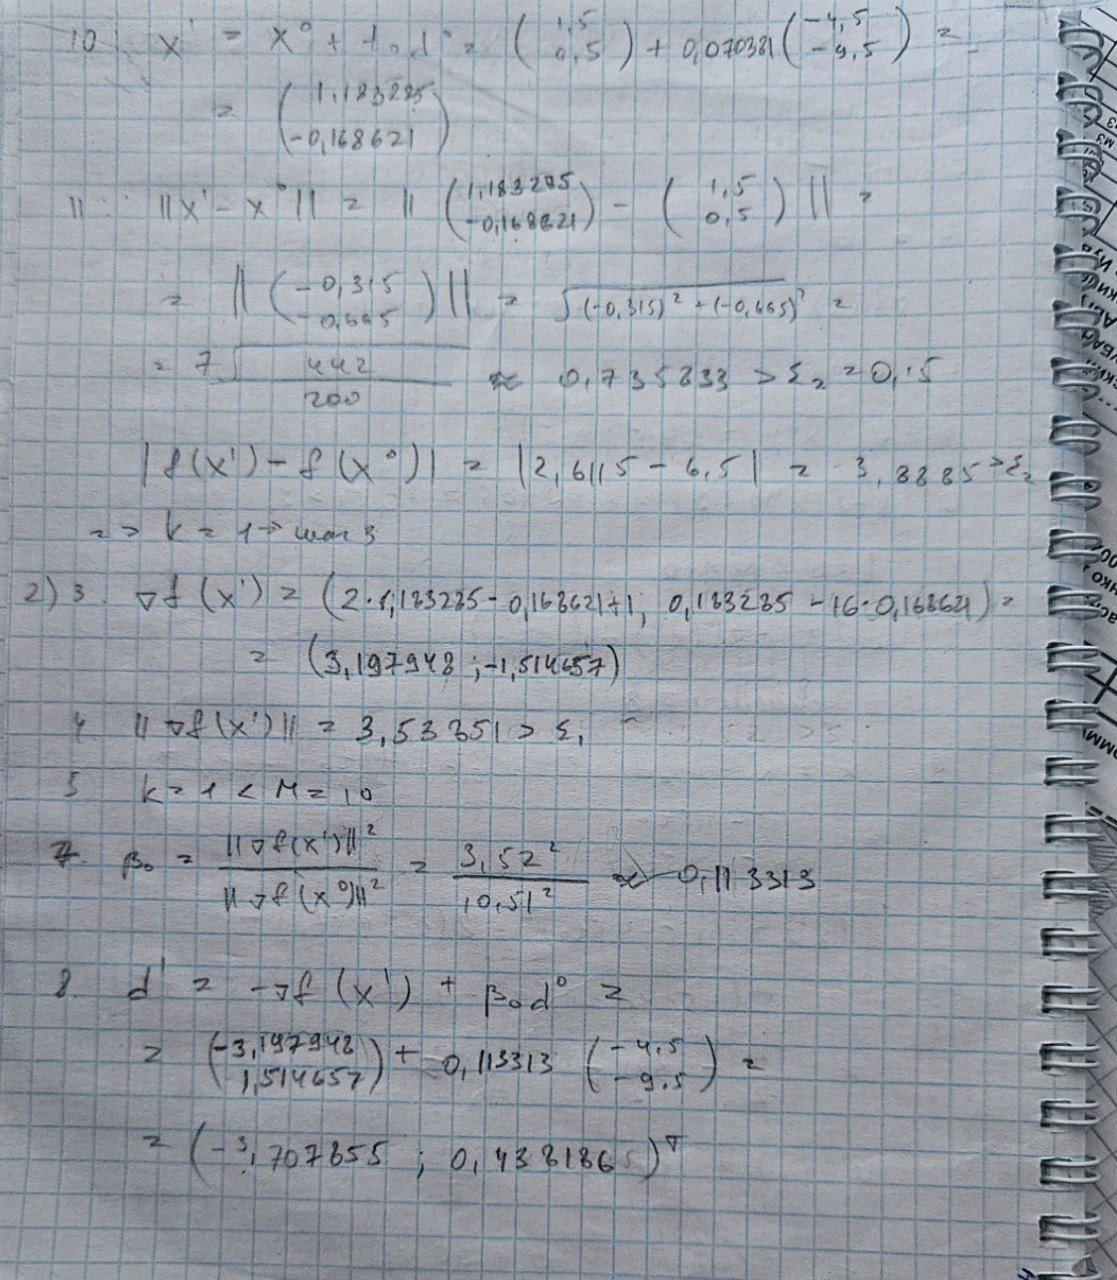 10. x' = x⁰ + t₀d⁰ = (1,5 0,5) + 0,070381 (-4,5 -9,5) =
= (1,183285 -0,168621)
11. ||x' - x⁰|| = || (1,183285 -0,168621) - (1,5 0,5) || =
= || (-0,315 -0,665) || = √((-0,315)² + (-0,665)²) =
= 7√442 / 200 ≈ 0,735833 > ε₂ = 0,15
|f(x') - f(x⁰)| = |2,6115 - 6,5| = 3,8885 > ε₂
=> k = 1 → шаг 3
2) 3. ∇f(x') = (2·1,183285 - 0,168621 + 1; 0,183285 - 16·0,168621) =
= (3,197948 ; -1,514657)
4 ||∇f(x')|| = 3,53851 > ε₁
5 k = 1 < M = 10
7. β₀ = ||∇f(x')||² / ||∇f(x⁰)||² = 3,52² / 10,51² ≈ 0,113313
8. d' = -∇f(x') + β₀d⁰ =
= (-3,197948 1,514657) + 0,113313 (-4,5 -9,5) =
= (-3,707855 ; 0,4381865)ᵀ